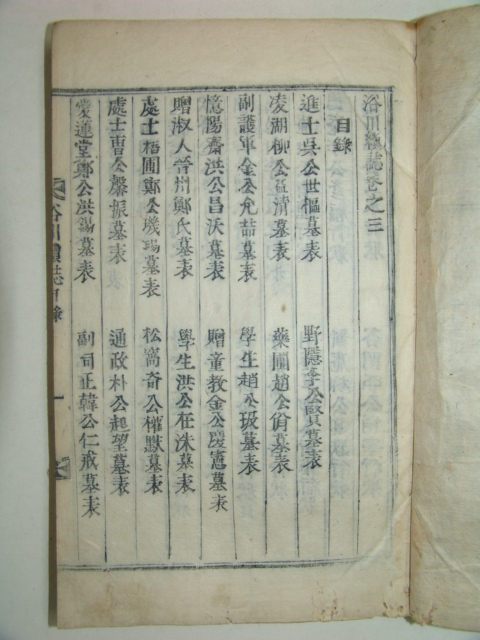 浴川續誌卷之三
目錄
進士吳公世樞墓表 野隱李公賢墓表
凌湖柳公益清墓表 藥圃趙公脩墓表
副護軍金公允喆墓表 學生趙公㺩墓表
憶陽齋洪公昌浹墓表 贈童教金公慶憲墓表
贈淑人晉州鄭氏墓表 學生洪公在洙墓表
處士梧圃鄭公璣錫墓表 松窩奇公權默墓表
處士曺公馨振墓表 通政朴公起望墓表
愛蓮堂鄭公洪錫墓表 副司正韓公仁戒墓表
浴川續誌目錄 一